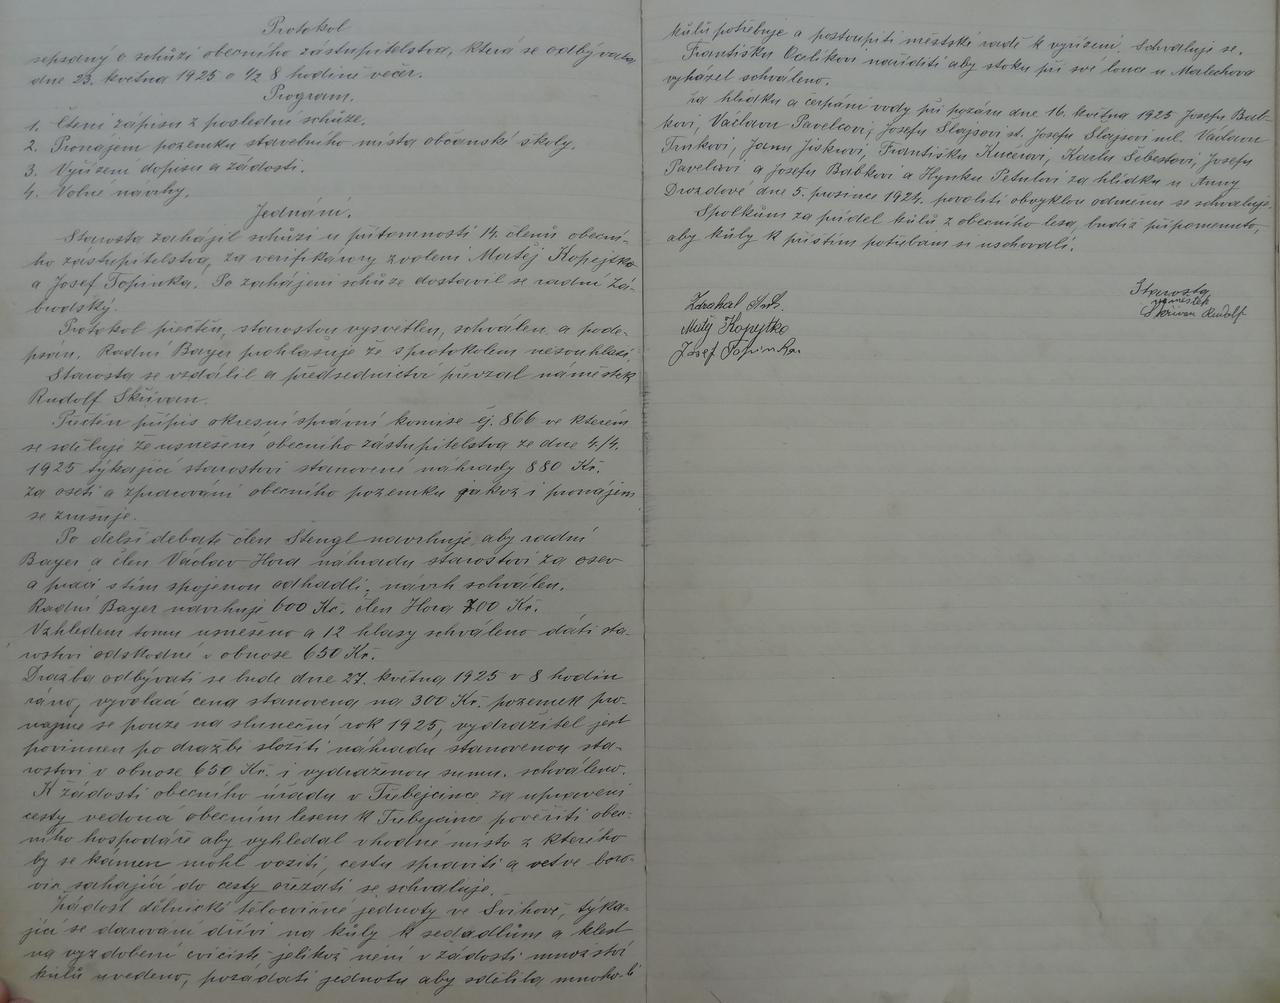 Protokol
sepsaný o schůzi obecního zástupitelstva, která se odbývala
dne 23. května 1925 o ½ 8 hodině večer.
Program.
1. Čtení zápisu z poslední schůze.
2. Pronájem pozemku stavebního místa občanské školy.
3. Vyřízení dopisu a žádosti.
4. Volné návrhy.
Jednání.
Starosta zahájil schůzi u přítomnosti 14. členů obecní-
ho zástupitelstva, za verifikátory zvoleni Matěj Kopejtko
a Josef Topinka. Po zahájení schůze dostavil se radní Zá-
brodský.
Protokol přečten, starostou vysvětlen, schválen a pode-
psán. Radní Bayer prohlašuje že sprotokolem nesouhlasí.
Starosta se vzdálil a předsednictví převzal náměstek
Rudolf Skřivan.
Přečten přípis okresní správní komise čj. 866 ve kterém
se sděluje že usnešení obecního zástupitelstva ze dne 4/4.
1925 týkající starostovi stanovené náhrady 880 Kč.
za osetí a zpracování obecního pozemku jakož i pronájem
se zrušuje.
Po delší debatě člen Stengl navrhuje, aby radní
Bayer a člen Václav Hora náhradu starostovi za osev
a práci stím spojenou odhadli, návrh schválen.
Radní Bayer navrhuje 600 Kč. člen Hora 700 Kč.
Vzhledem tomu usneseno a 12 hlasy schváleno dáti sta-
rostovi odškodné v obnose 650 Kč.
Dražba odbývati se bude dne 27. května 1925 v 8 hodin
ráno, vyvolací cena stanovena na 300 Kč. pozemek pro-
najme se pouze na sluneční rok 1925, vydražitel jest
povinnen po dražbě složiti náhradu stanovenou sta-
rostovi v obnose 650 Kč. i vydraženou sumu. schváleno.
K žádosti obecního úřadu v Třebejcince za upravení
cesty vedoucí obecním lesem k Třebejcince pověřiti obec-
ního hospodáře aby vyhledal vhodné místo z kterého
by se kámen mohl voziti, cestu spraviti a větve boro-
vic sahající do cesty ořezati se schvaluje.
Žádost dělnické tělocvičné jednoty ve Švihově, týka-
jící se darování dříví na kůly k sedadlům a klest
na vyzdobení cvičiště jelikož není v žádosti množství
kůlů uvedeno, požádati jednotu aby sdělila mnoho-li
kůlů potřebuje a postoupiti městské radě k vyřízení. Schvaluje se.
Františku Ocelíkovi naříditi aby stoku při své louce u Malechova
vyházel schváleno.
Za hlídku a čerpání vody při požáru dne 16. května 1925 Josefu Bab-
kovi, Václavu Pavelcovi, Josefu Slajsovi st. Josefu Slajsovi ml. Václavu
Trnkovi, Janu Jiskrovi, Františku Kučerovi, Karlu Šebestovi, Josefu
Pavelcovi a Josefu Babkovi a Hynku Petulovi za hlídku u Anny
Drozdové dne 5. prosince 1924. povoliti obvyklou odměnu se schvaluje.
Spolkům za příděl kůlů z obecního lesa, budiž připomenuto,
aby kůly k příštím potřebám si uschovali.
Starosta
náměstek
Skřivan Rudolf
Zdrahal Ant.
Matěj Kopejtko
Josef Topinka.